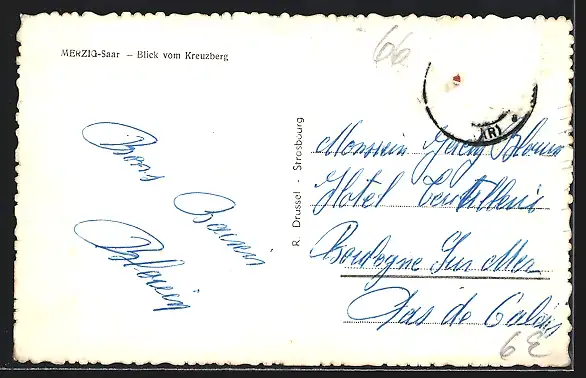 MERZIG-Saar – Blick vom Kreuzberg
66
AR)
Bons
Baisers
Blouin
R. Drussel - Strasbourg
Monsieur Blouin
Hotel
Boulogne Sur Mer
Pas de Calais
6E